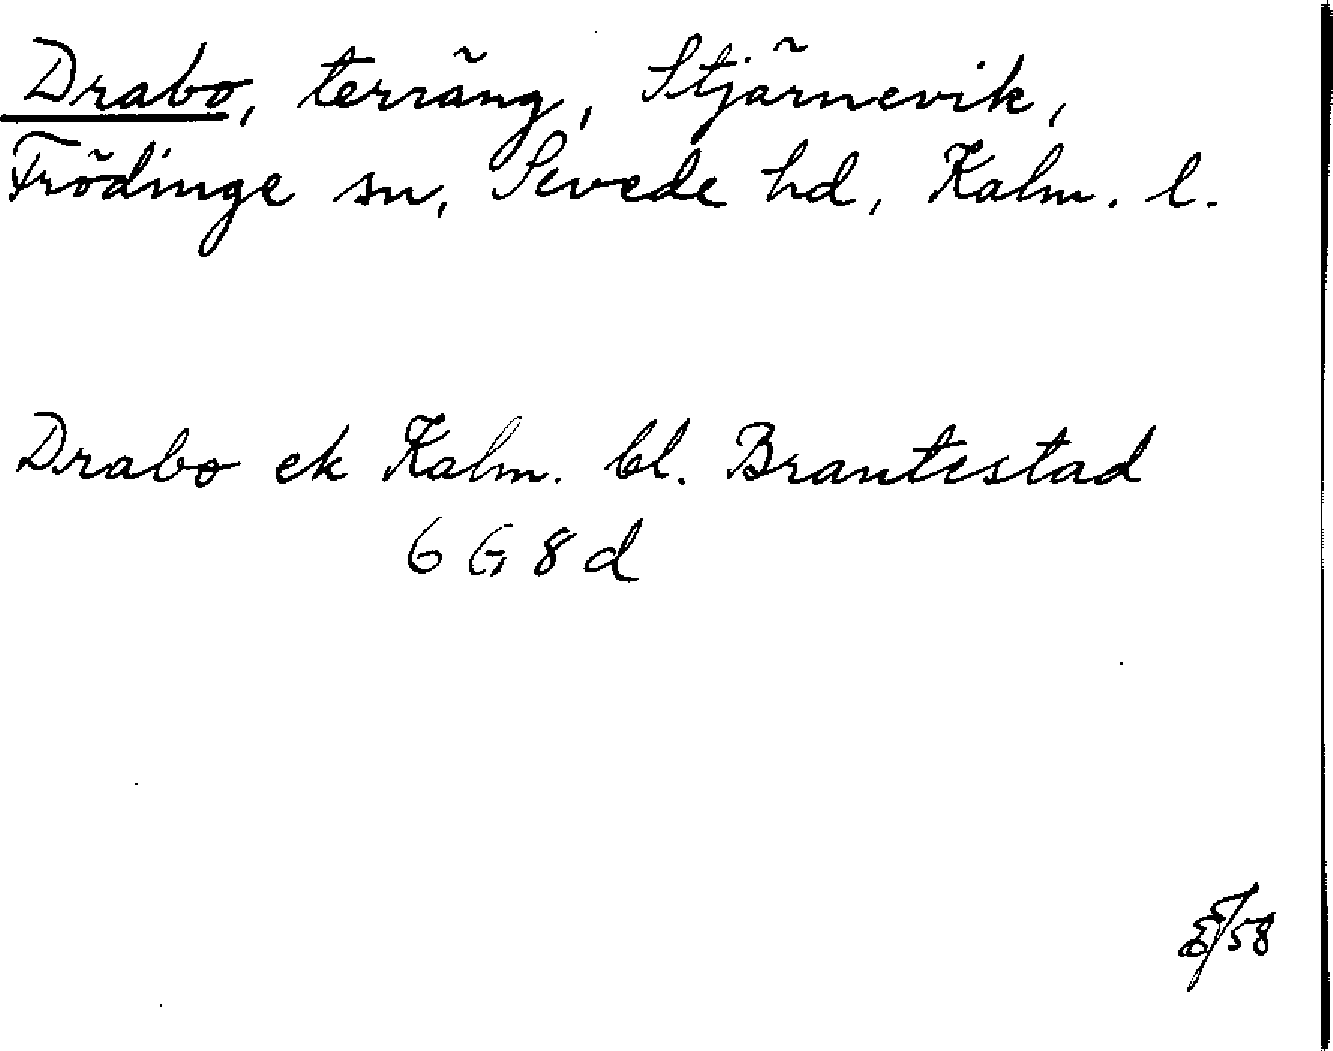 Drabo, terräng, Stjärnevik,
Frödinge sn, Sevede hd, Kalm. l.
Drabo ek Kalm. bl. Brantestad
6 G 8 d
E/58